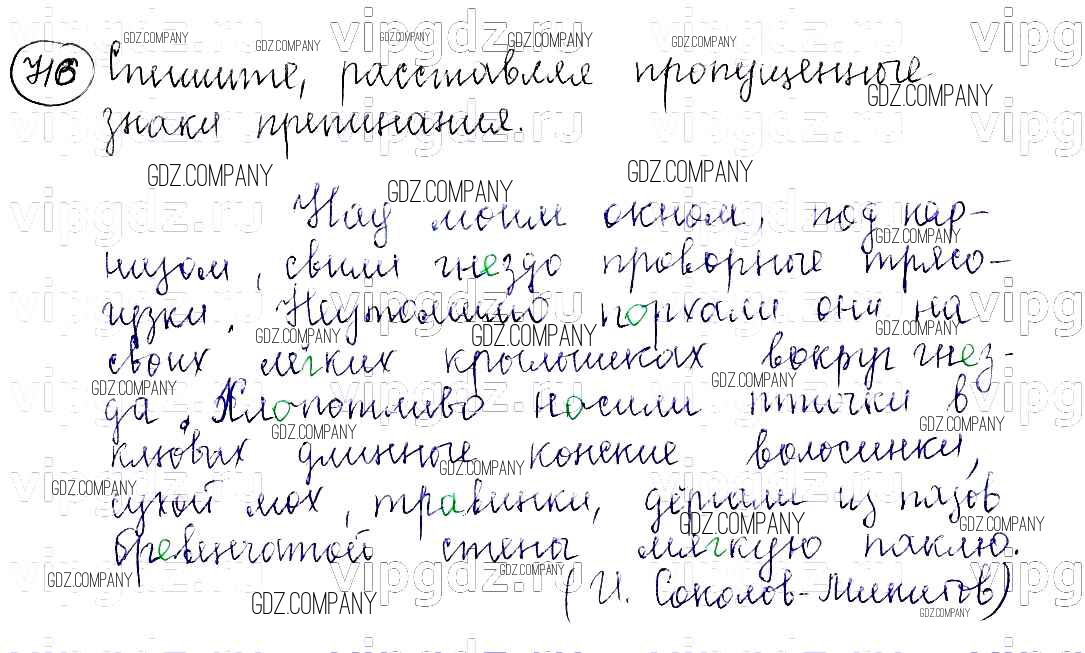 716 Спишите, расставляя пропущенные
знаки препинания.
Над моим окном, под кар-
низом, свили гнездо проворные трясо-
гузки. Неутомимо порхали они на
своих лёгких крылышках вокруг гнез-
да. Хлопотливо носили птички в
клювах длинные конские волосинки,
сухой мох, травинки, дёргали из пазов
бревенчатой стены мягкую паклю.
(И. Соколов-Микитов)